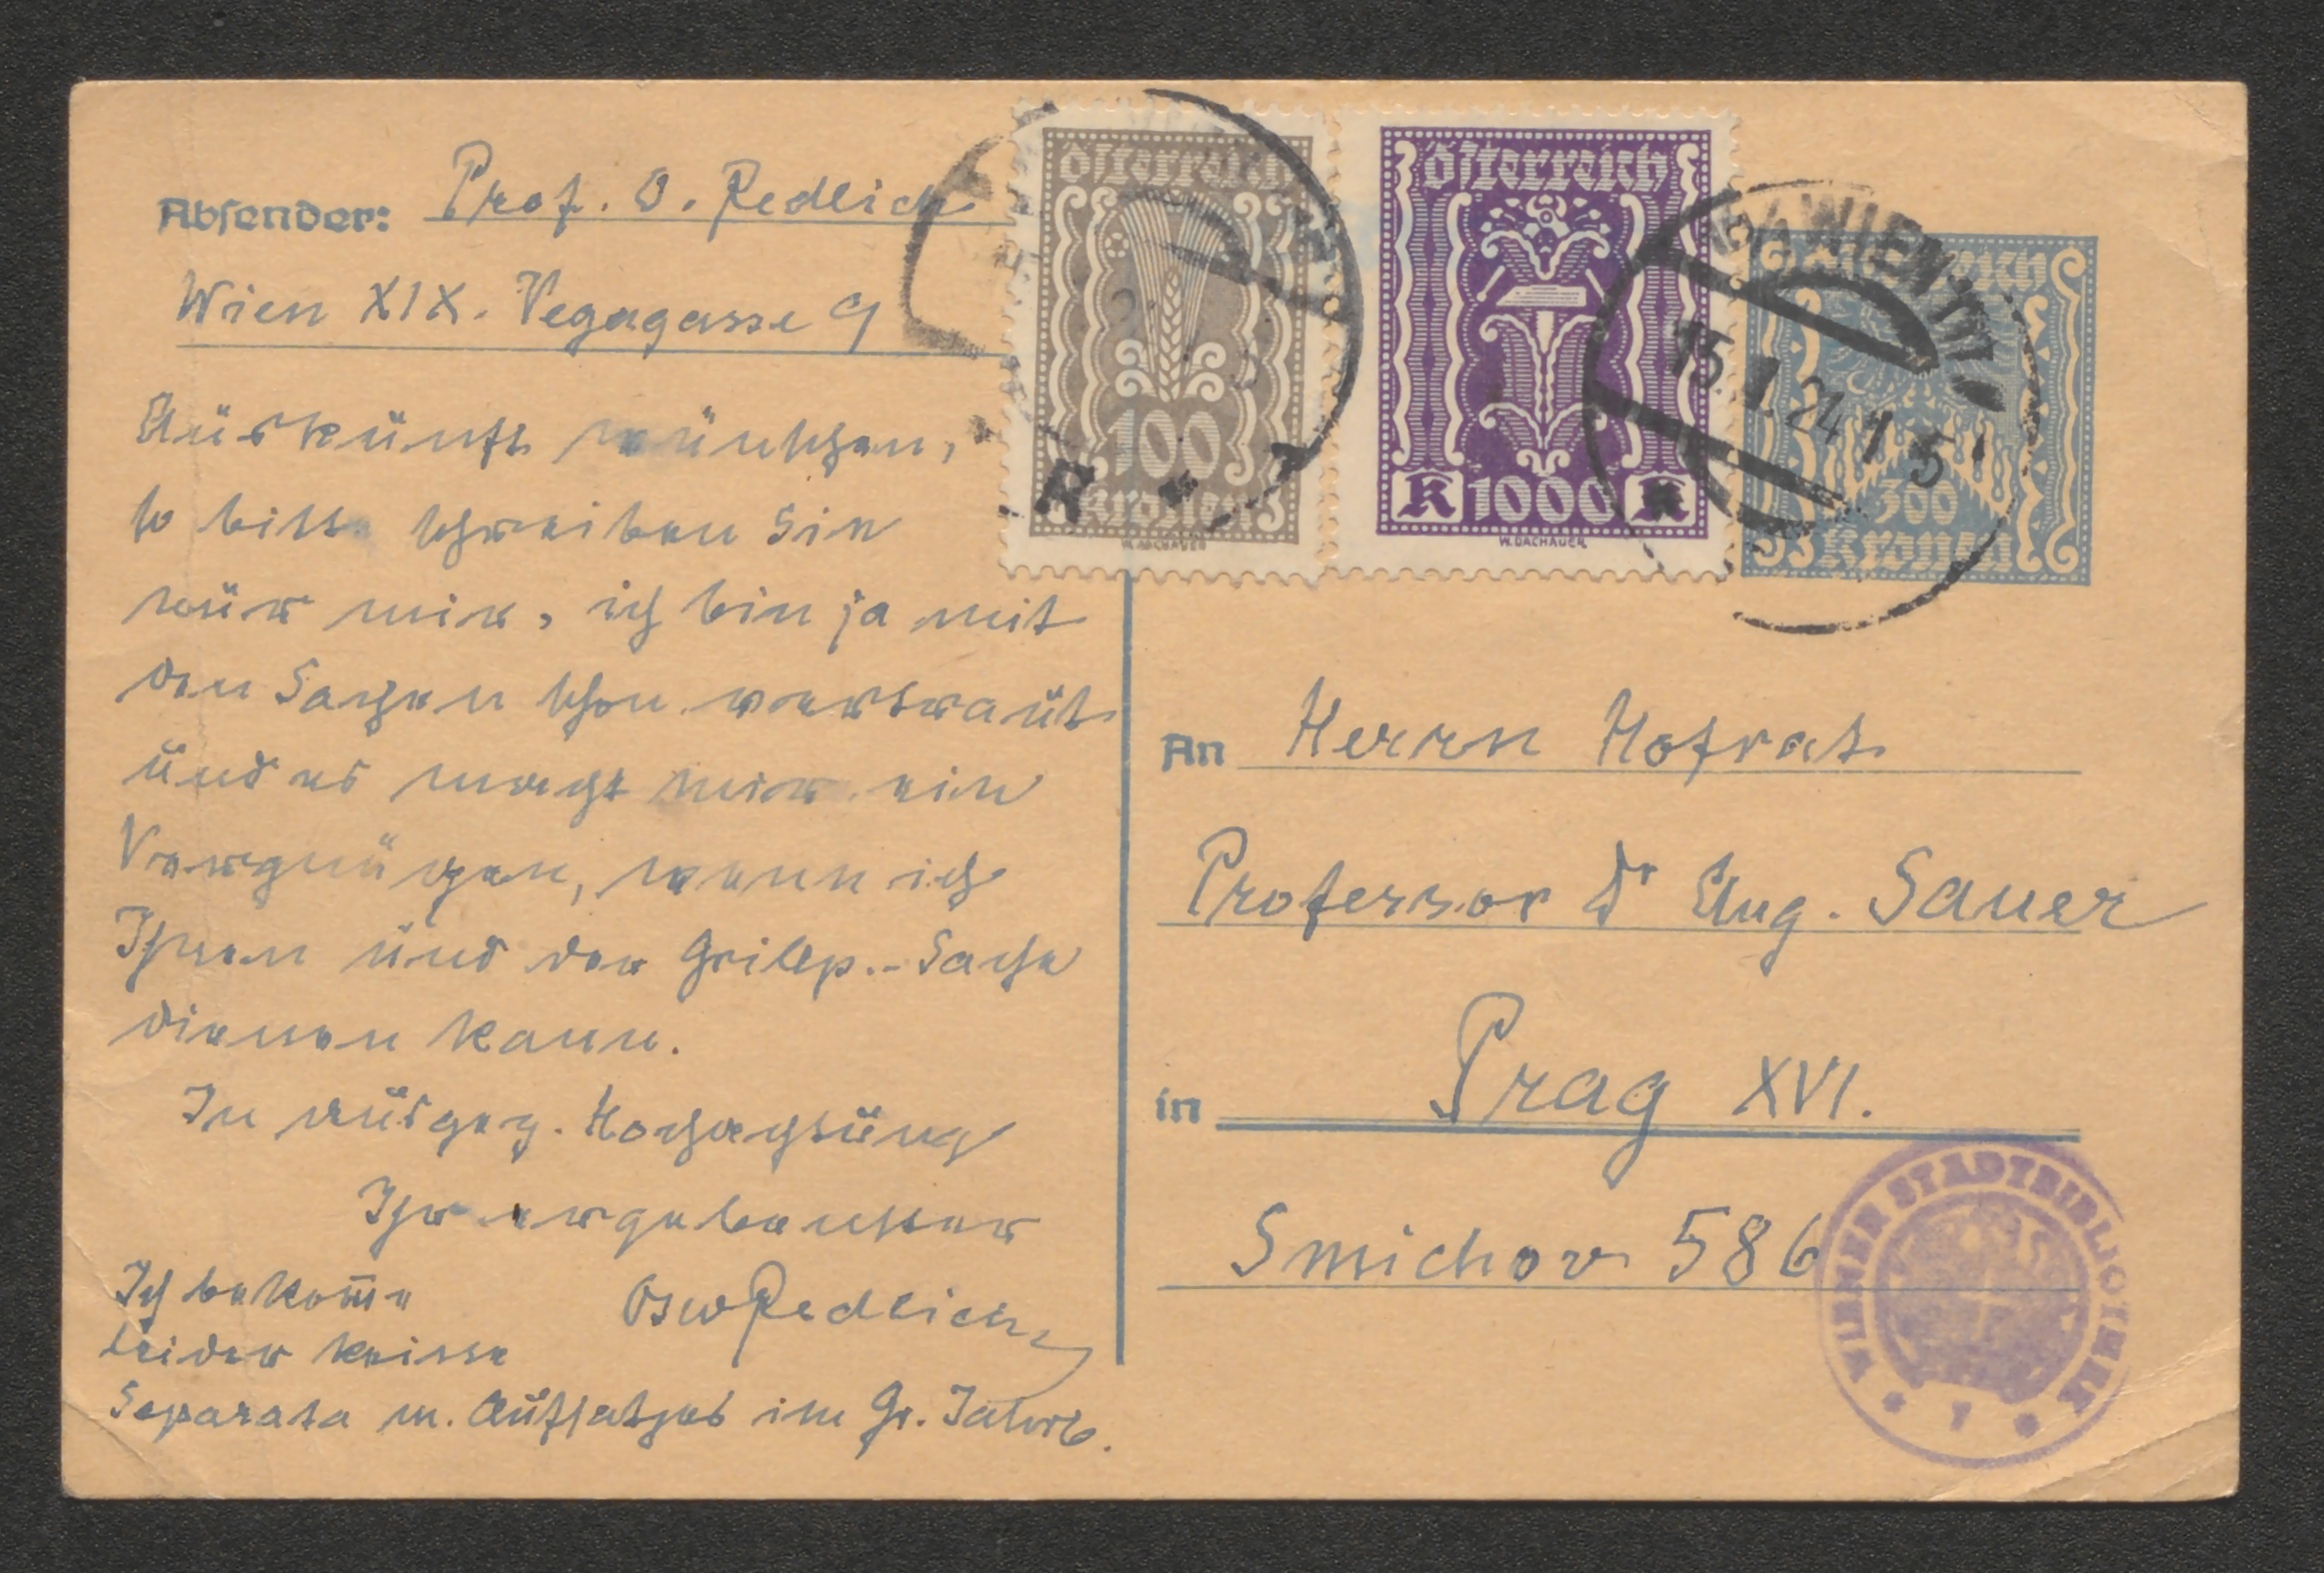 Absender: Prof. O. Redlich
Wien XIX. Vegagasse 9
Auskunft wünschen,
so bitte schreiben Sie
nur mir, ich bin ja mit
den Sachen schon vertraut
und es macht mir ein
Vergnügen, wenn ich
Ihnen und der Grillp.-Sache
dienen kann.
In ausgez. Hochachtung
Ihr ergebenster
OswRedlich
Ich bekom̅e
leider keine
Separata m. Aufsatzes im Gr. Jahrb.
Österreich
100
Kronen
W. DACHAUER
Österreich
K 1000 K
W. DACHAUER
WIEN
15. I. 24
300
Kronen
An Herrn Hofrat
Professor Dr Aug. Sauer
in Prag XVI.
Smichov 586
WIENER STADTBIBLIOTHEK
* 1 *